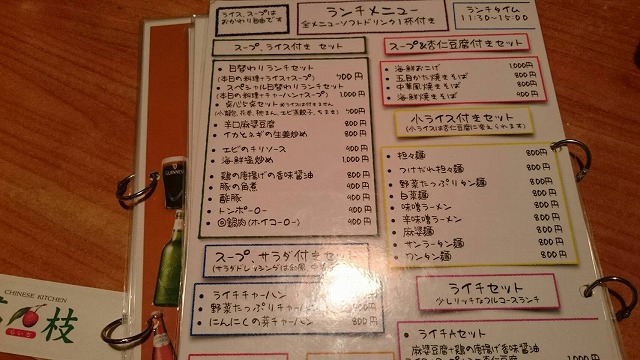 ライス、スープは
おかわり自由です
ランチメニュー
全メニューソフトドリンク1杯付き
ランチタイム
11:30~15:00
スープ、ライス付き セット
日替わりランチセット
(本日の料理+ライス+スープ) 700円
スペシャル日替わりランチセット
(本日の料理+チャーハン+スープ) 1,000円
※ライスは付きません
700円
辛口麻婆豆腐 800円
イカとネギの生姜炒め 800円
エビのチリソース 900円
海鮮塩炒め 1,000円
鶏の唐揚げの香味醤油 800円
豚の角煮 900円
酢豚 900円
トンポーロー 900円
回鍋肉(ホイコーロー) 900円
スープ、サラダ付きセット
(サラダドレッシングは和風、
ライチチャーハン
野菜たっぷりチャーハン 900円
にんにくの芽チャーハン 800円
スープ&杏仁豆腐付きセット
海鮮おこげ 1,000円
五目かた焼きそば 800円
中華風焼きそば 800円
海鮮焼きそば 900円
小ライス付きセット
(小ライスは杏仁豆腐に変えられます)
担々麺 800円
つけだれ担々麺 800円
野菜たっぷりタン麺 800円
白菜麺 800円
味噌ラーメン 800円
辛味噌ラーメン 800円
麻婆麺 800円
サンラータン麺 800円
ワンタン麺 800円
ライチセット
少しリッチなフルコースランチ
ライチAセット
麻婆豆腐+鶏の唐揚げの香味醤油
GUINNESS
CHINESE KITCHEN
枝